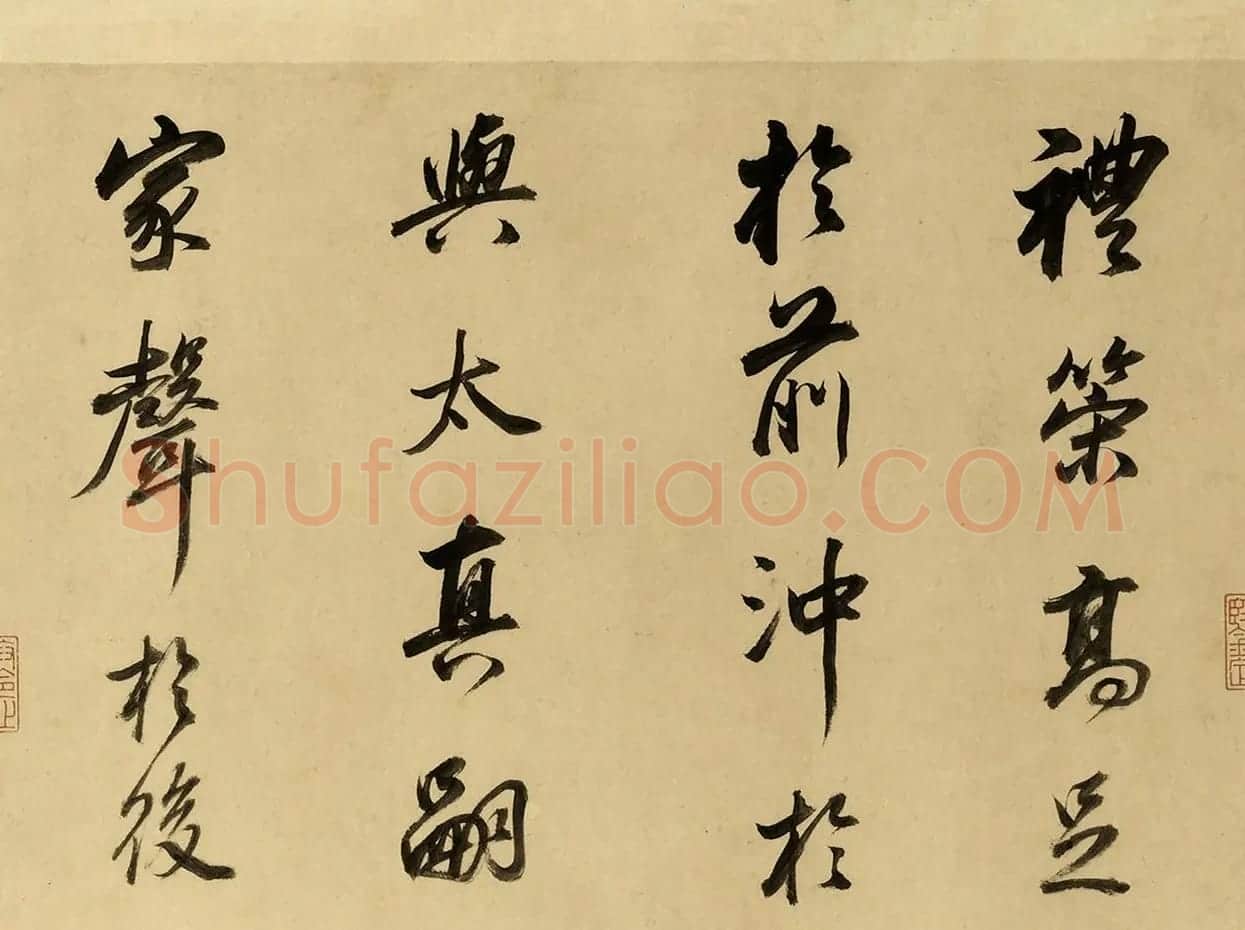 禮策高足
於前沖於
與太真嗣
家聲於後
shufaziliao.COM